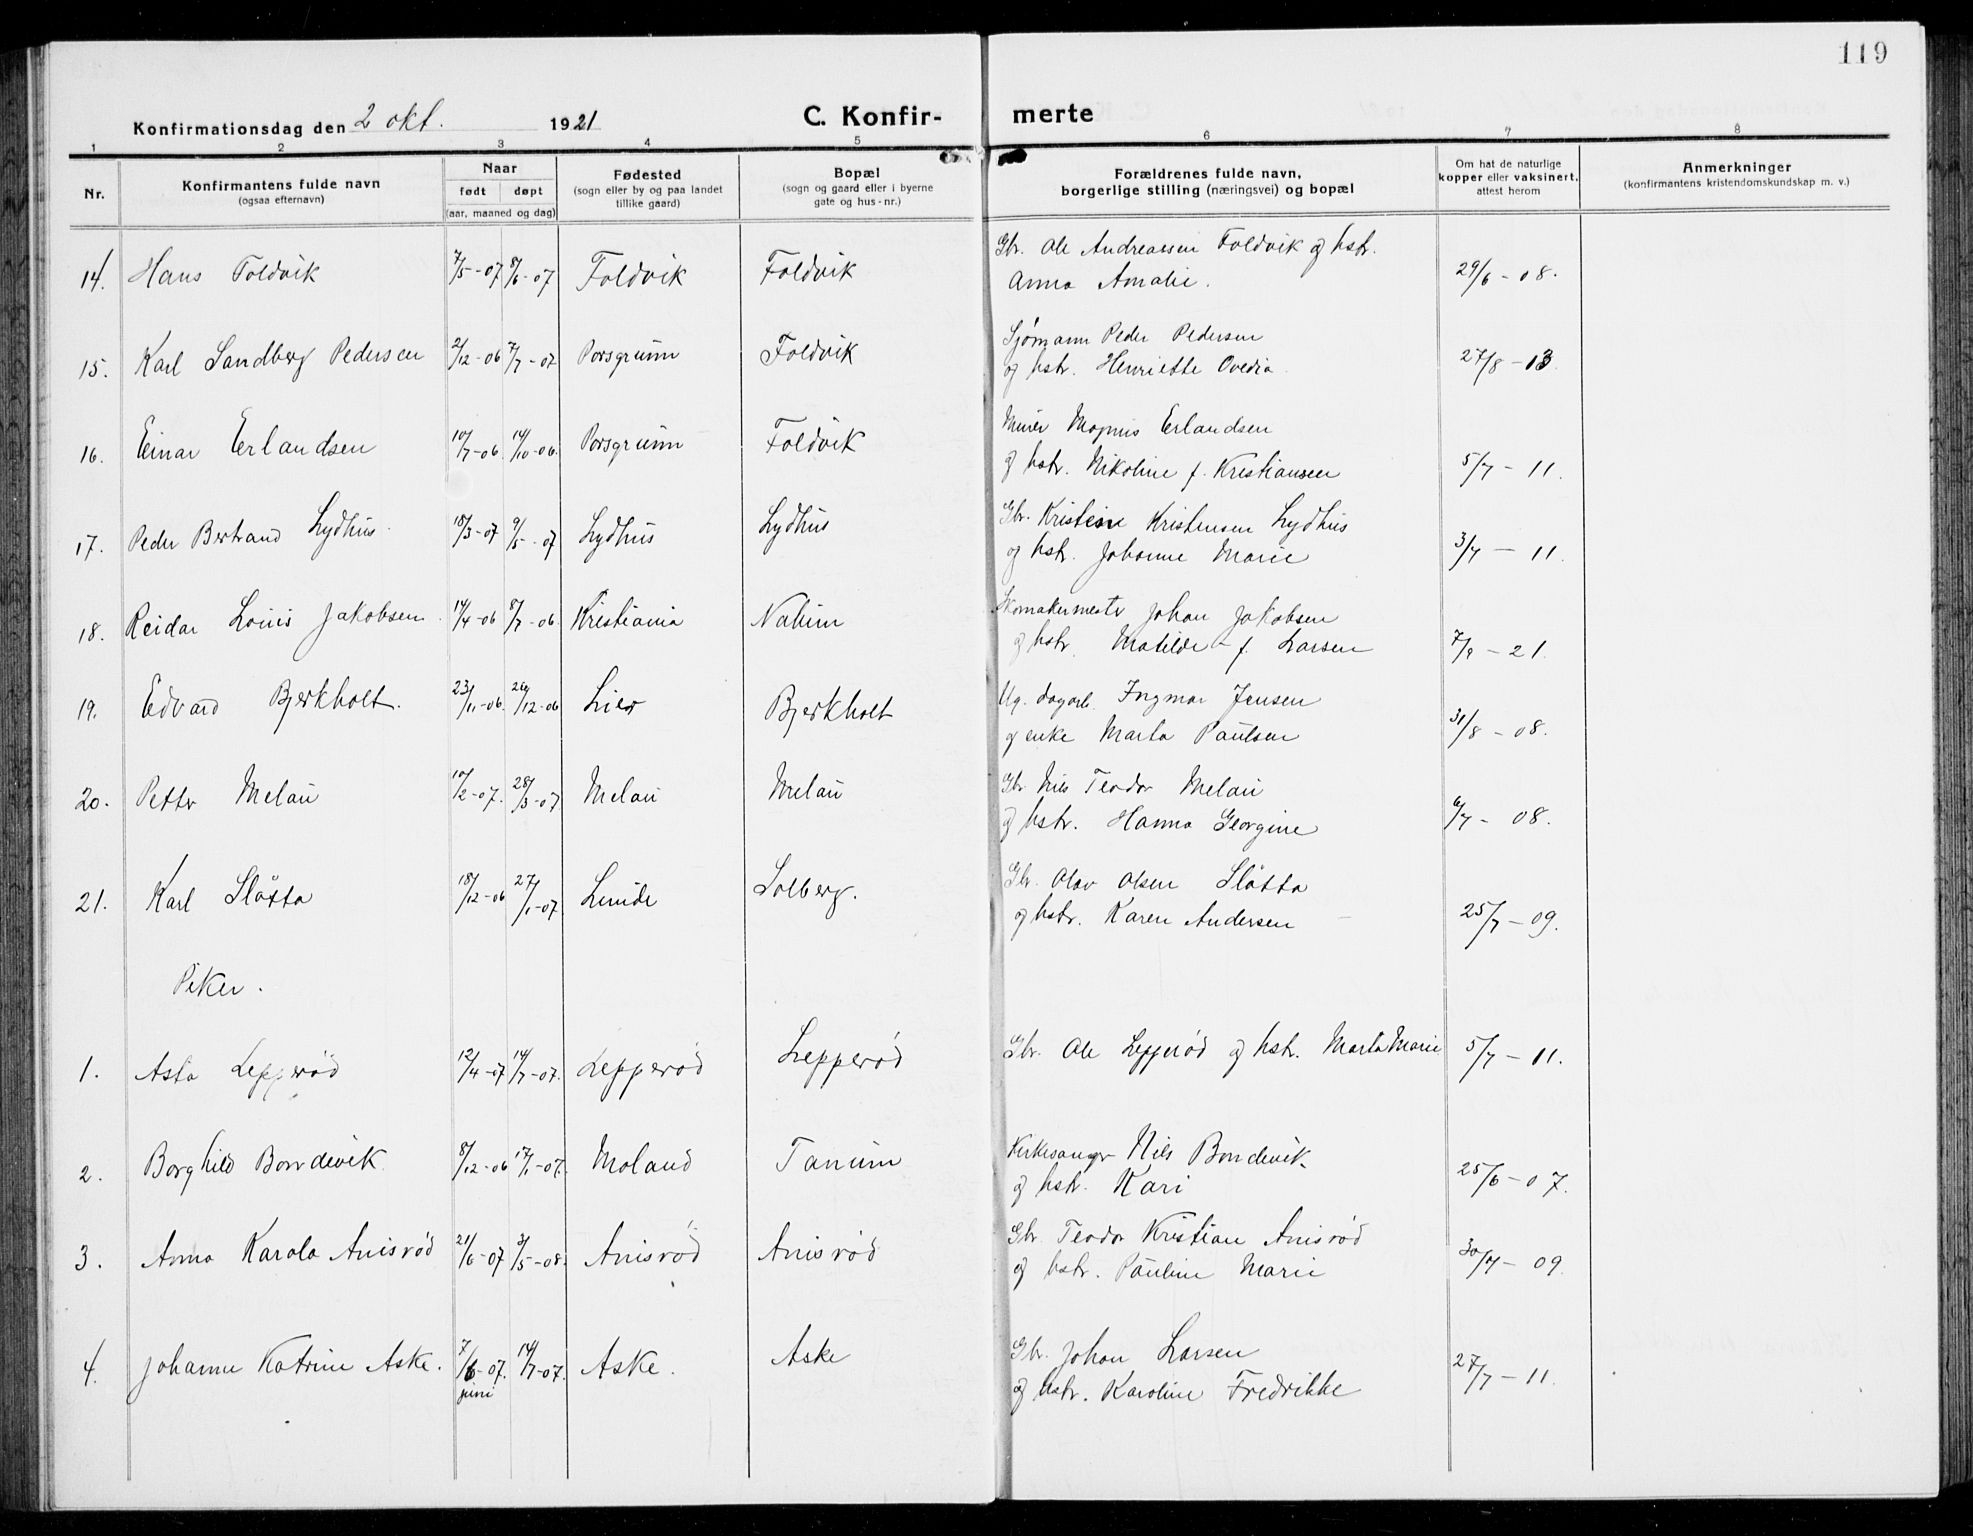 119
Konfirmationsdag den 2 okt. 1921 C. Konfirmerte
1 2 3 4 5 6 7 8
Nr. Konfirmantens fulde navn (ogsaa efternavn) Naar født døpt (aar, maaned og dag) Fødested (sogn eller by og paa landet tillike gaard) Bopæl (sogn og gaard eller i byerne gate og hus-nr.) Forældrenes fulde navn, borgerlige stilling (næringsvei) og bopæl Om hat de naturlige kopper eller vaksinert, attest herom Anmerkninger (konfirmantens kristendomskundskap m. v.)
14. Hans Foldvik 7/5-07 8/6-07 Foldvik Foldvik Gbr. Ole Andreassen Foldvik og hstr. Anna Amalie. 29/6-08.
15. Karl Sandberg Pedersen 2/12-06 7/7-07 Porsgrunn Foldvik Sjømann Peder Pedersen og hstr. Henriette Ovedia. 27/8-13.
16. Einar Erlandsen 10/7-06. 14/10-06. Porsgrunn Foldvik Murer Magnus Erlandsen og hstr. Nikoline f. Kristiansen 5/7-11.
17. Peder Bertrand Lydhus 18/3-07 9/5-07 Lydhus Lydhus Gbr. Kristen Kristensen Lydhus og hstr. Johanne Marie 3/7-11.
18. Reidar Louis Jakobsen. 14/4-06 8/7-06. Kristiania Nalum Skomakermester Johan Jakobsen og hstr. Matilde f. Larsen 7/9-21.
19. Edvard Bjerkholt. 23/11-06. 26/12-06 Lier Bjerkholt Ug. dagarb. Ingmar Jensen og enke Marta Paulsen 31/8-08.
20. Petter Melau 10/2-07. 28/3-07 Melau Melau Gbr Nils Teodor Melau og hstr. Hanna Georgine 6/7-08.
21. Karl Slåtta 18/12-06 27/1-07 Lunde Solberg. Gbr. Olav Olsen Slåtta og hstr. Karen Andersen 25/7-09.
Piker.
1. Asta Lepperød 12/4-07 14/7-07. Lepperød Lepperød Gbr. Ole Lepperød og hstr. Marta Marie 5/7-11.
2. Borghild Bondevik 8/12-06 17/1-07. Moland Tanum Kirkesanger Nils Bondevik og hstr. Kari 25/6-07.
3. Anna Karola Anisrød 21/6-07 3/5-08. Anisrød Anisrød Gbr Teodor Kristian Anisrød og hstr. Pauline Marie 30/7-09.
4. Johanne Katrine Aske. 7/6-07. juni 14/7-07. Aske. Aske Gbr. Johan Larsen og hstr. Karoline Fredrikke 27/7-11.